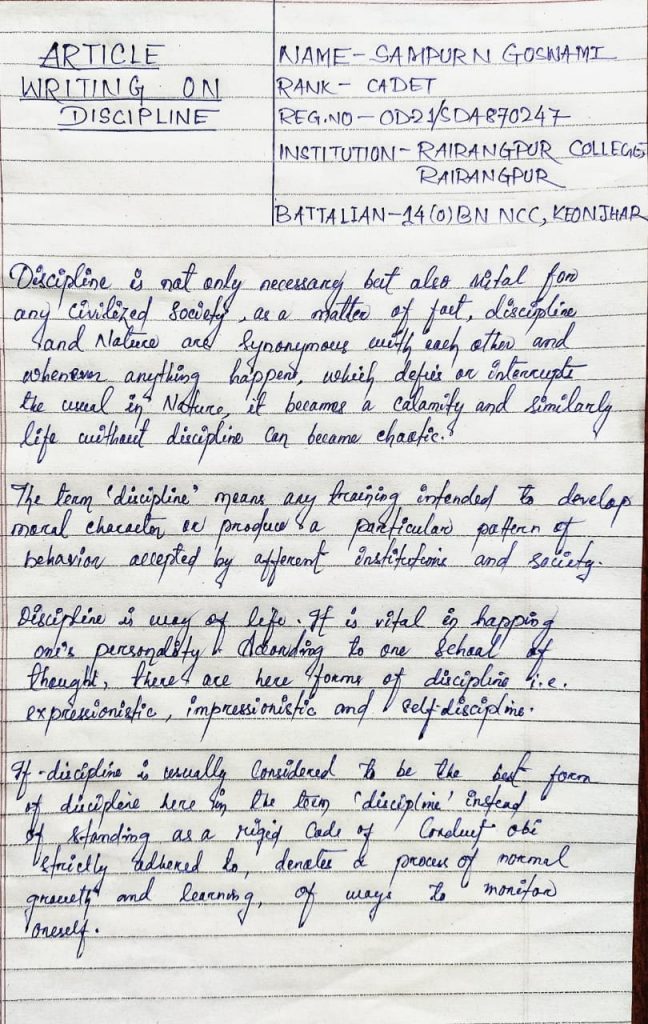 ARTICLE
WRITING ON
DISCIPLINE
NAME - SAMPURN GOSWAMI
RANK - CADET
REG.NO - OD21/SDA870247
INSTITUTION - RAIRANGPUR COLLEGE,
RAIRANGPUR
BATTALIAN - 14(O)BN NCC, KEONJHAR
Discipline is not only necessary but also vital for
any civilized society, as a matter of fact, discipline
and Nature are synonymous with each other and
whenever anything happens, which defies or interrupts
the usual in Nature, it becomes a calamity and similarly
life without discipline can became chaotic.
The term 'discipline' means any training intended to develop
moral character or produce a particular pattern of
behavior accepted by afferent institutions and society.
Discipline is way of life. It is vital in happing
one's personality. According to one school of
thought, there are here forms of discipline i.e.
expressionistic, impressionistic and self-discipline.
If-discipline is usually considered to be the best form
of discipline here in the term 'discipline' instead
of standing as a rigid Code of Conduct obi
strictly adhered to, denotes a process of normal
growth and learning, of ways to monitor
oneself.